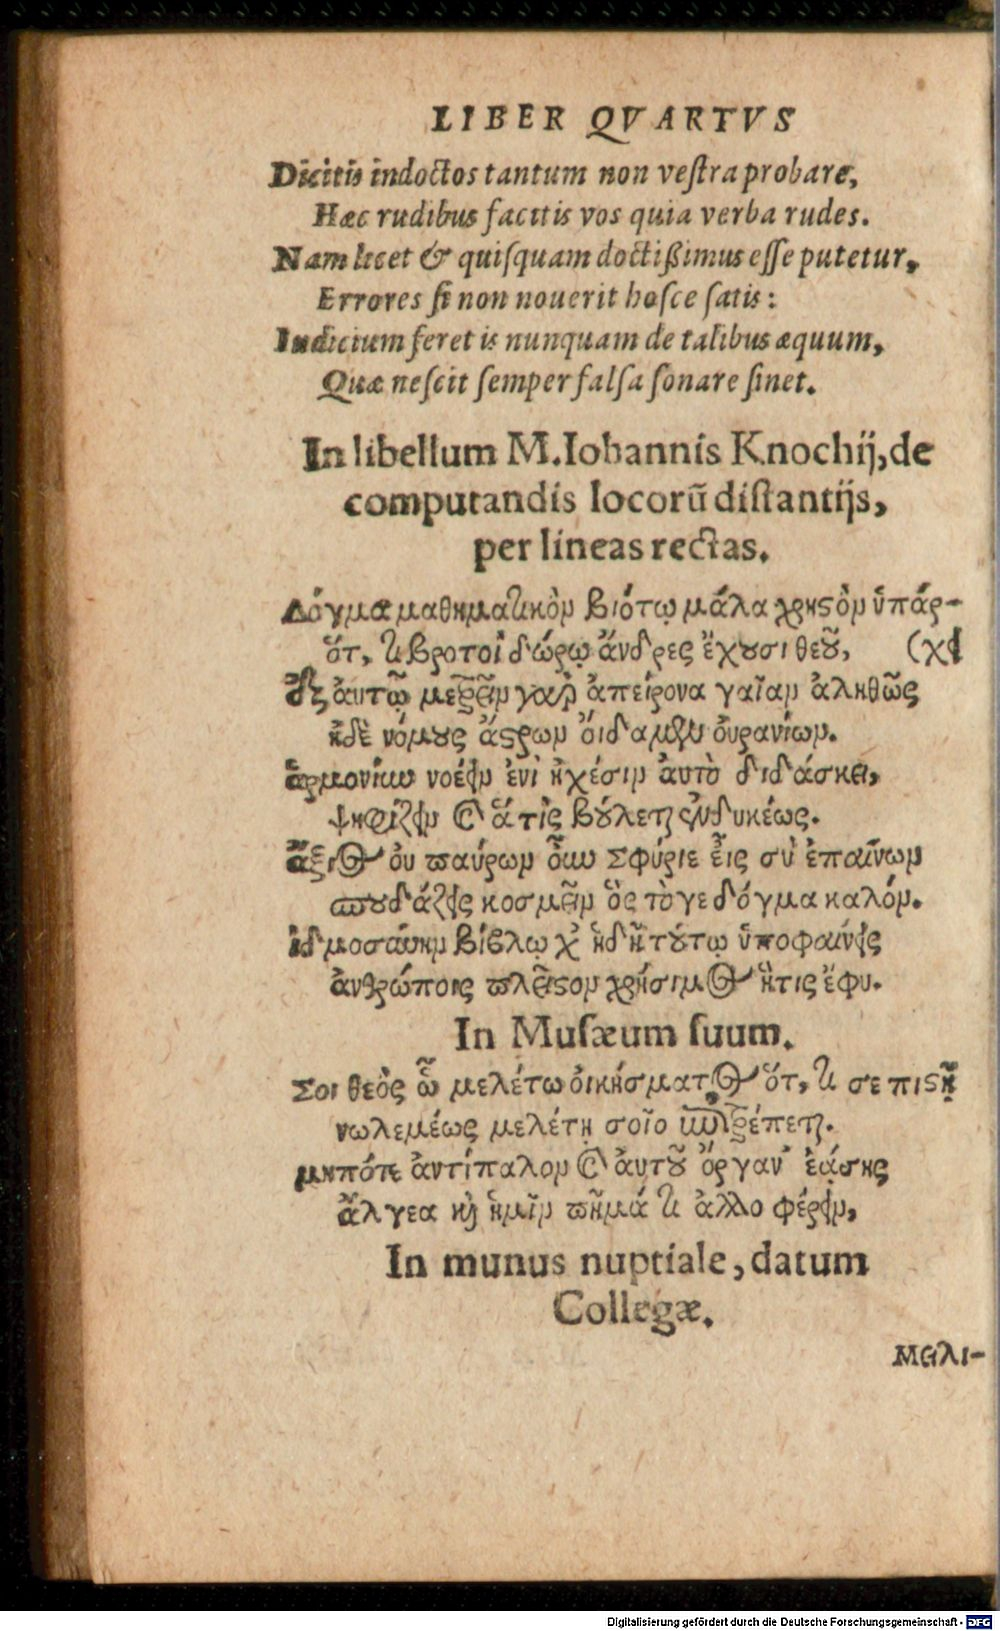 LIBER QVARTVS
Dicitis indoctos tantum non vestra probare,
Hæc rudibus facitis vos quia verba rudes.
Nam licet & quisquam doctißimus esse putetur,
Errores si non nouerit hosce satis:
Iudicium feret is nunquam de talibus æquum,
Quæ nescit semper falsa sonare sinet.
In libellum M. Iohannis Knochij, de
computandis locorū distantijs,
per lineas rectas.
Δόγμα μαθηματικὸν βιότῳ μάλα χρηστὸν ὑπάρ-
ὅτ, τι βροτοὶ δώρῳ ἄνδρες ἔχουσι θεοῦ, (χει
αὐτῷ μετρεῖν γὰρ ἀπείρονα γαῖαν ἀληθῶς
ἠδὲ νόμους ἄστρων οἴδαμεν οὐρανίων.
ἁρμονίαν νοέειν ἐνὶ ἠχέσιν αὐτὸ διδάσκει,
ψηφίζειν καὶ ἅ τὶς βούλεται ἐνδυκέως.
ἄξιος οὐ παύρων οὖν Σφύριε εἶις σὺ ἐπαίνων
σπουδάζεις κοσμεῖν ὃς τὸ γε δόγμα καλόν.
ἰδμοσύνην βίβλῳ καὶ ἠδὴ τούτῳ ὑποφαίνεις
ἀνθρώποις πλεῖστον χρήσιμος ἥτις ἔφυ.
In Musæum suum.
Σοι θεὸς ὦ μελέτω οἰκήσματος ὅτ, τι σε πιστῇ
νωλεμέως μελέτῃ σοῖο ἐπιτρέπεται.
μηπότε ἀντίπαλον καὶ αὐτοῦ ὄργαν' ἐάσῃς
ἄλγεα καὶ ἡμῖν πῆμά τι ἀλλο φέρειν,
In munus nuptiale, datum
Collegæ.
Μελι-
Digitalisierung gefördert durch die Deutsche Forschungsgemeinschaft - DFG